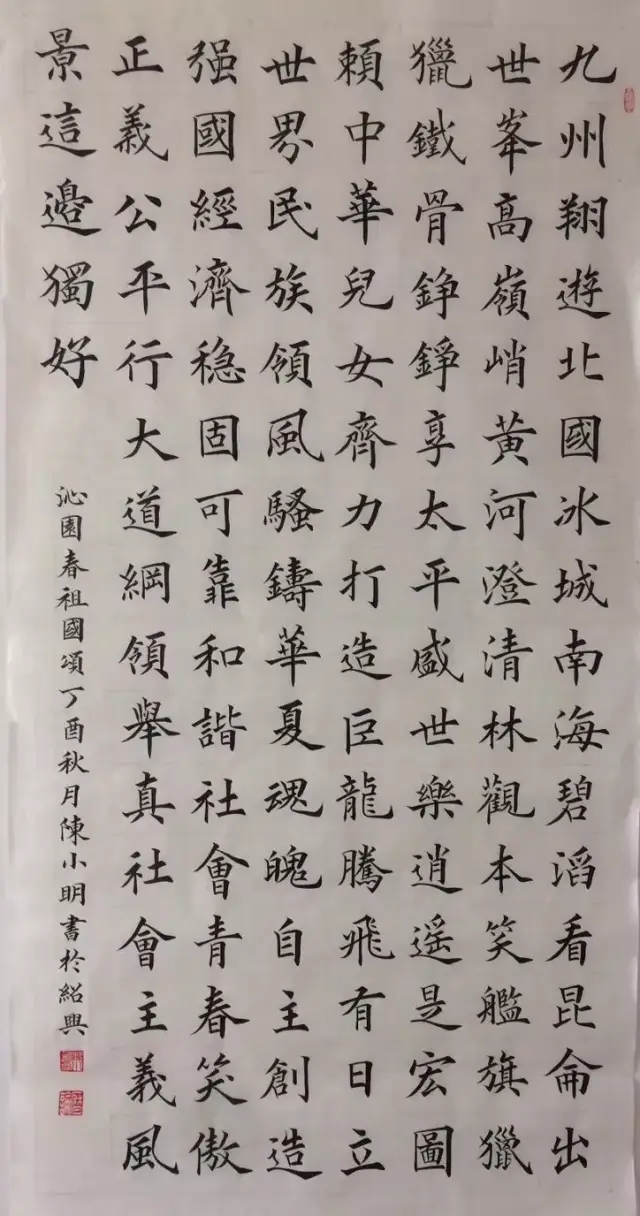 九州翔遊北國冰城南海碧滔看昆侖出
世峯高嶺峭黃河澄清林觀本笑艦旗獵
獵鐵骨錚錚享太平盛世樂逍遥是宏圖
頼中華兒女齊力打造巨龍騰飛有日立
世界民族領風騷鑄華夏魂魄自主創造
强國經濟稳固可靠和諧社會青春笑傲
正義公平行大道綱領舉真社會主義風
景這邊獨好
沁園春祖國頌丁酉秋月陳小明書於紹興